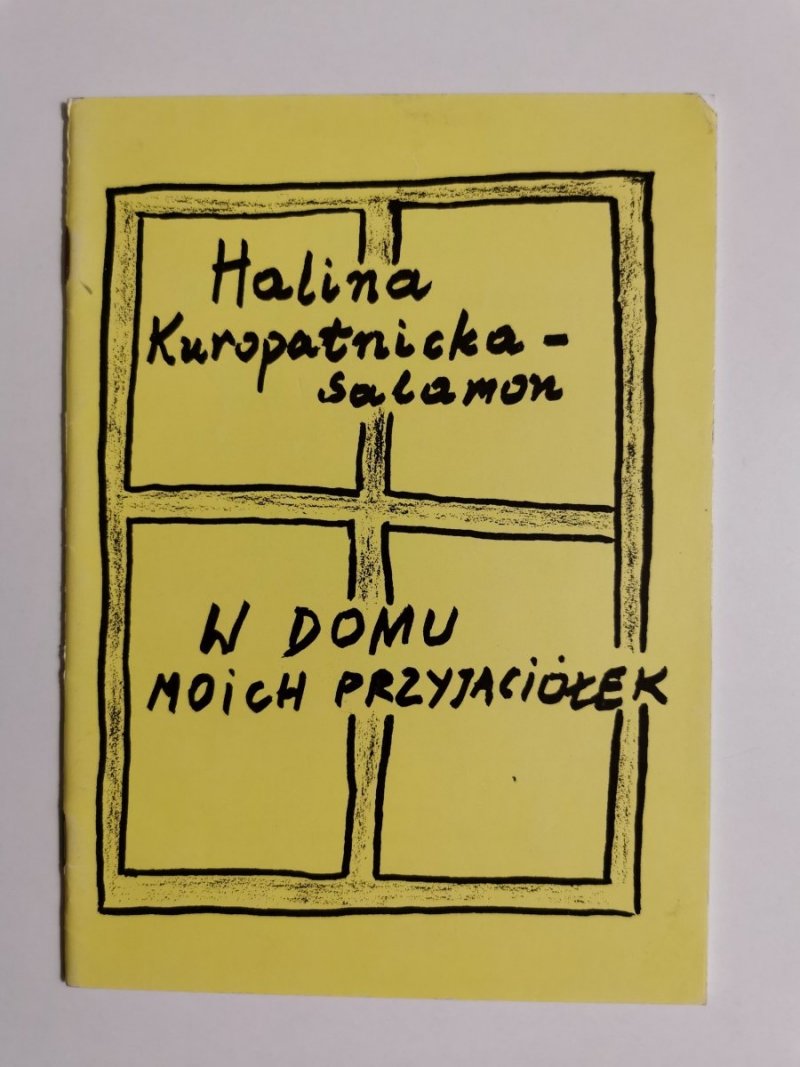 Halina
Kuropatnicka -
Salamon
W DOMU
MOICH PRZYJACIÓŁEK